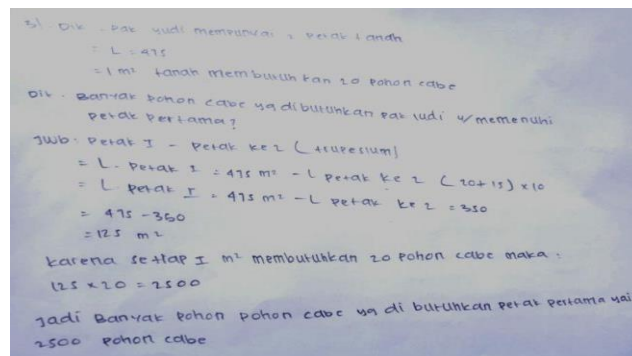 3). Dik - Pak yudi mempunyai 2 petak tanah
= L = 475
= 1 m² tanah membutuhkan 20 pohon cabe
Dit . Banyak pohon cabe yg dibutuhkan pak Yudi u/ memenuhi
petak pertama?
Jwb : Petak I - petak ke 2 (trapesium)
= L. Petak I = 475 m² - L petak ke 2 (20+15) x 10
= L petak I = 475 m² - L petak ke 2 = 350
= 475 - 350
= 125 m²
karena setiap I m² membutuhkan 20 pohon cabe maka :
125 x 20 = 2500
Jadi Banyak pohon pohon cabe yg di butuhkan petak pertama yai
2500 pohon cabe